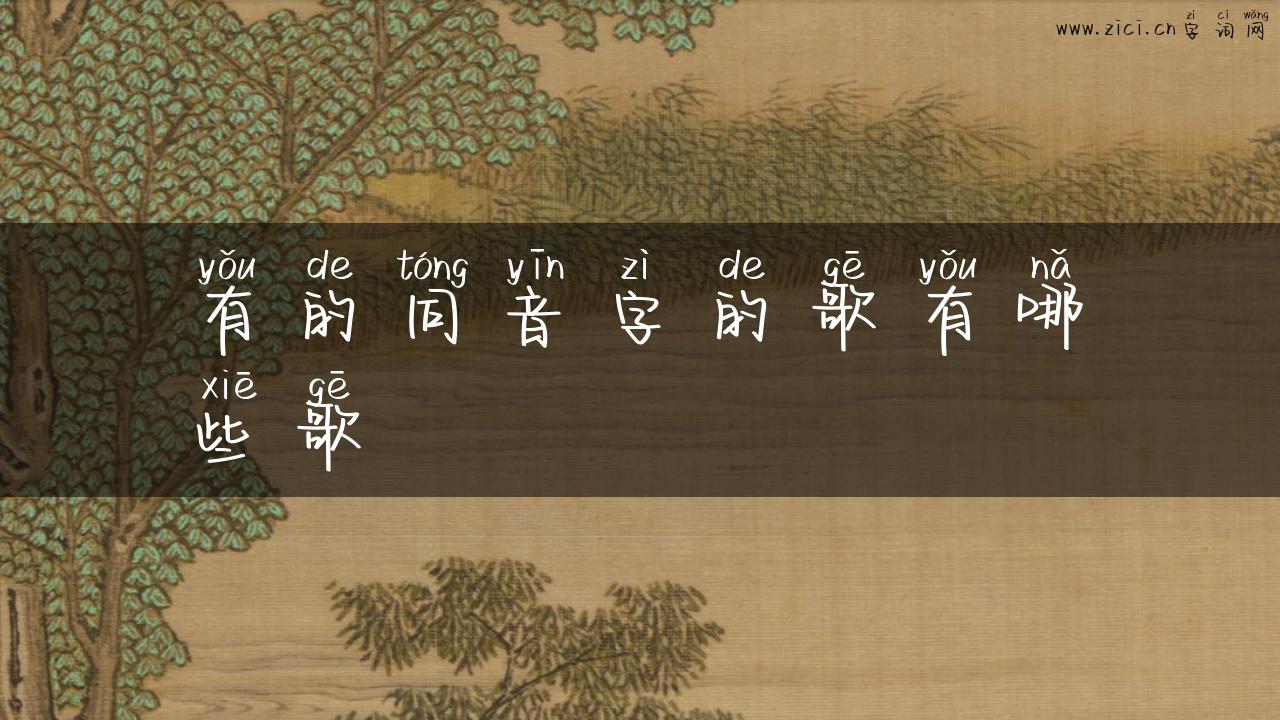 zì cí wǎng
www.zici.cn 字词网
yǒu de tóng yīn zì de gē yǒu nǎ
有的同音字的歌有哪
xiē gē
些歌